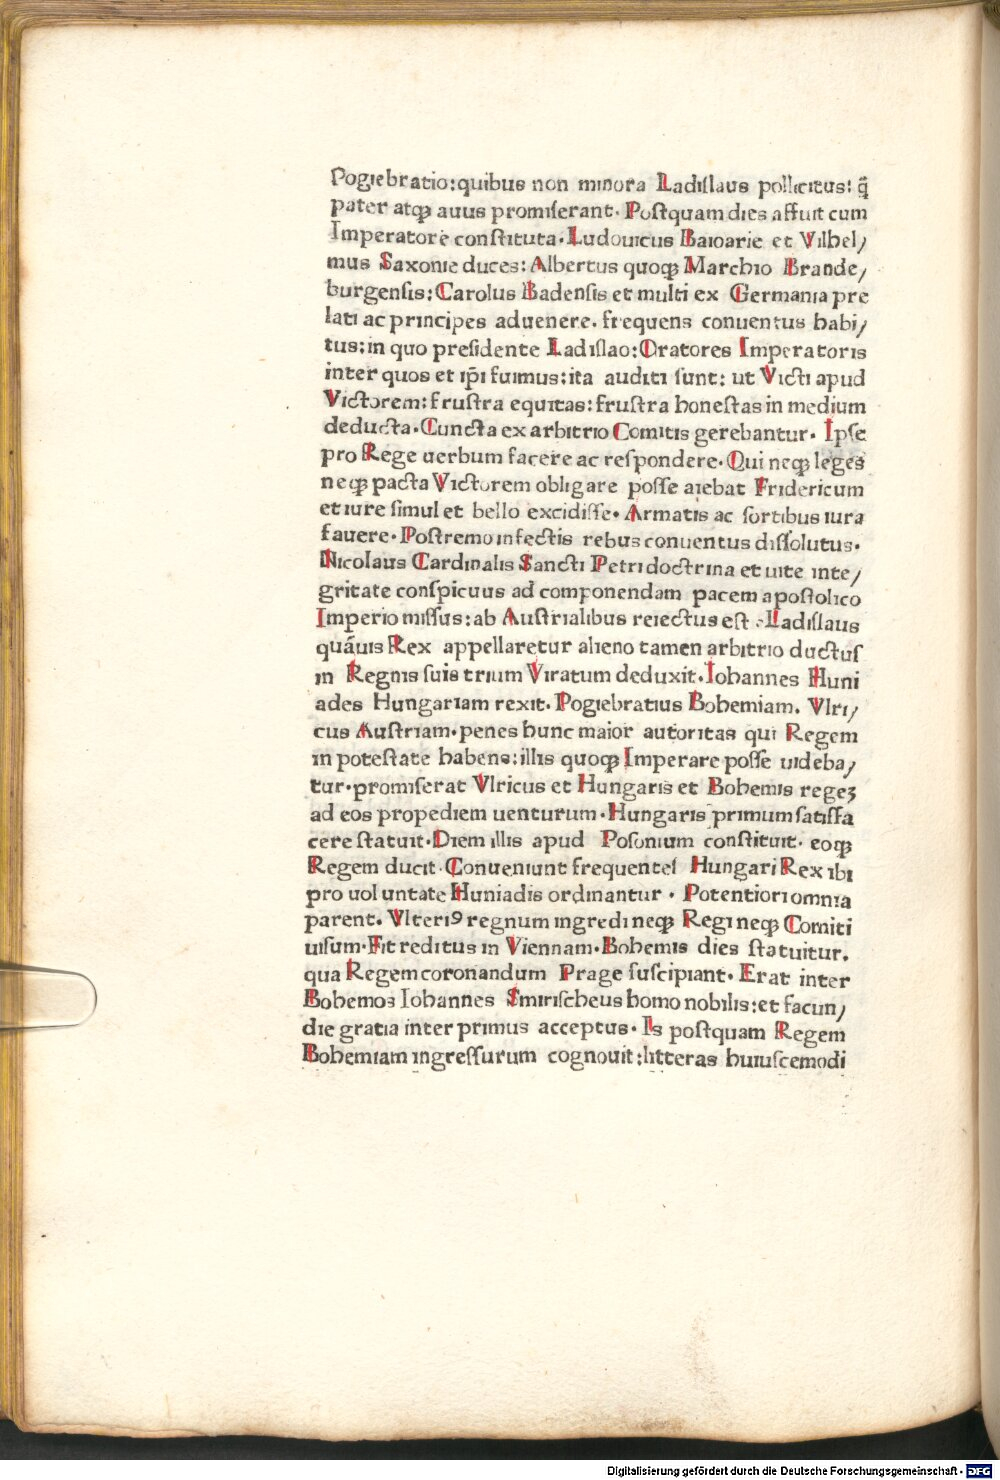 Pogiebratio:quibus non minora Ladiſlaus pollicitus: q̄
pater atqꝫ auus promiſerant. Poſtquam dies affuit cum
Imperatore conſtituta. Ludouicus Baioarie et Vilhel/
mus Saxonie duces: Albertus quoqꝫ Marchio Brande/
burgenſis: Carolus Badenſis et multi ex Germania pre
lati ac principes aduenere. frequens conuentus habi/
tus: in quo preſidente Ladiſlao: Oratores Imperatoris
inter quos et ip̄i fuimus: ita auditi ſunt: ut Victi apud
Victorem: fruſtra equitas: fruſtra honeſtas in medium
deducta. Cuncta ex arbitrio Comitis gerebantur. Ipſe
pro Rege uerbum facere ac reſpondere. Qui neqꝫ leges
neqꝫ pacta Victorem obligare poſſe aiebat Fridericum
et iure ſimul et bello excidiſſe. Armatis ac fortibus iura
fauere. Poſtremo infectis rebus conuentus diſſolutus.
Nicolaus Cardinalis Sancti Petri doctrina et uite inte/
gritate conſpicuus ad componendam pacem apoſtolico
Imperio miſſus: ab Auſtrialibus reiectus eſt. Ladiſlaus
quāuis Rex appellaretur alieno tamen arbitrio ductuſ
in Regnis ſuis trium Viratum deduxit. Iohannes Huni
ades Hungariam rexit. Pogiebratius Bohemiam. Vlri/
cus Auſtriam. penes hunc maior autoritas qui Regem
in poteſtate habens: illis quoqꝫ Imperare poſſe uideba/
tur. promiſerat Vlricus et Hungaris et Bohemis regeꝫ
ad eos propediem uenturum. Hungaris primum ſatiſfa
cere ſtatuit. Diem illis apud Poſonium conſtituit. eoqꝫ
Regem ducit. Conueniunt frequenteſ Hungari Rex ibi
pro uoluntate Huniadis ordinantur. Potentiori omnia
parent. Vlteriꝰ regnum ingredi neqꝫ Regi neqꝫ Comiti
uiſum. Fit reditus in Viennam. Bohemis dies ſtatuitur.
qua Regem coronandum Prage ſuſcipiant. Erat inter
Bohemos Iohannes Smiriſcheus homo nobilis: et facun/
die gratia inter primus acceptus. Is poſtquam Regem
Bohemiam ingreſſurum cognouit: litteras huiuſcemodi
Digitalisierung gefördert durch die Deutsche Forschungsgemeinschaft - DFG